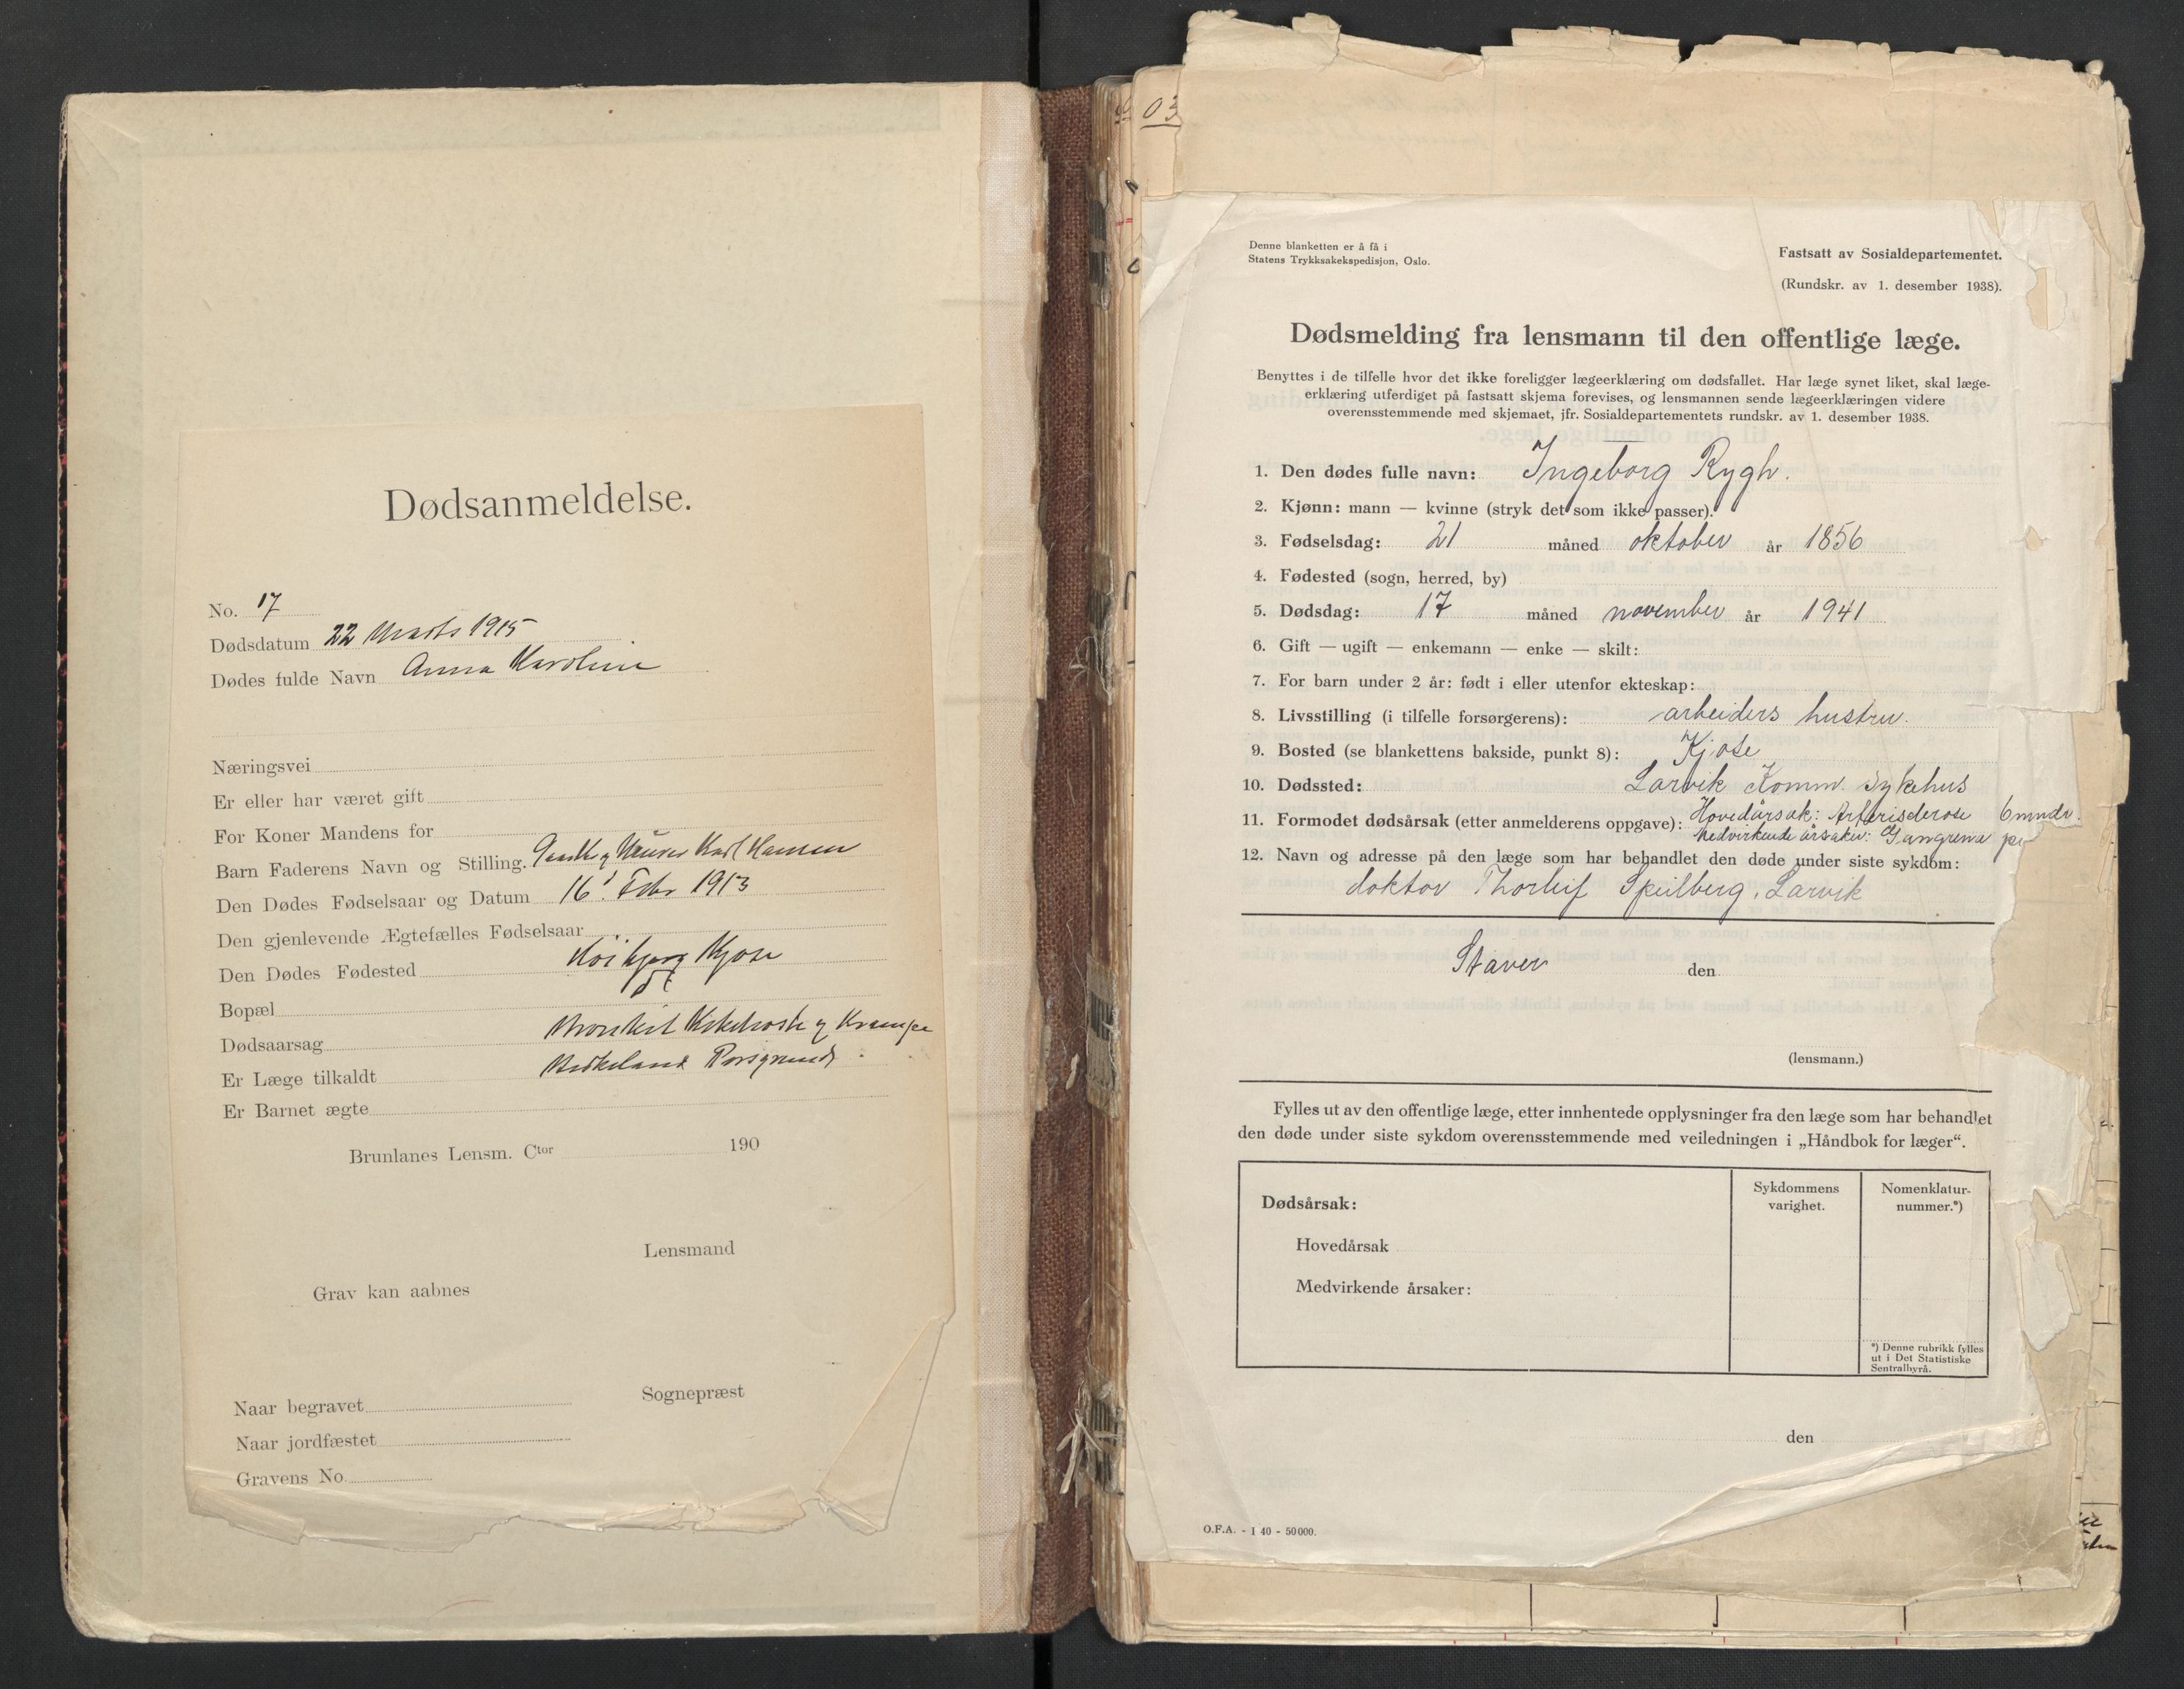 Dødsanmeldelse.
No. 17
Dødsdatum 22 Marts 1915
Dødes fulde Navn Anna Karoline
Næringsvei
Er eller har været gift
For Koner Mandens for
Barn Faderens Navn og Stilling. Karl Hansen
Den Dødes Fødselsaar og Datum 16' Febr 1913
Den gjenlevende Ægtefælles Fødselsaar
Den Dødes Fødested Kjose
Bopæl
Dødsaarsag Kikhoste og Krampe
Er Læge tilkaldt Porsgrund
Er Barnet ægte
Brunlanes Lensm. Ctor 190
Lensmand
Grav kan aabnes
Sogneprӕst
Naar begravet
Naar jordfæstet
Gravens No
03
Denne blanketten er å få i
Statens Trykksakekspedisjon, Oslo.
Fastsatt av Sosialdepartementet.
(Rundskr. av 1. desember 1938).
Dødsmelding fra lensmann til den offentlige læge.
Benyttes i de tilfelle hvor det ikke foreligger lægeerklæring om dødsfallet. Har læge synet liket, skal læge-
erklæring utferdiget på fastsatt skjema forevises, og lensmannen sende lægeerklæringen videre
overensstemmende med skjemaet, jfr. Sosialdepartementets rundskr. av 1. desember 1938.
1. Den dødes fulle navn: Ingeborg Rygh.
2. Kjønn: mann — kvinne (stryk det som ikke passer).
3. Fødselsdag: 21 måned oktober år 1856
4. Fødested (sogn, herred, by)
5. Dødsdag: 17 måned november år 1941
6. Gift — ugift — enkemann — enke — skilt:
7. For barn under 2 år: født i eller utenfor ekteskap:
8. Livsstilling (i tilfelle forsørgerens): arbeiders hustru.
9. Bosted (se blankettens bakside, punkt 8): Kjose
10. Dødssted: Larvik Komm. Sykehus
11. Formodet dødsårsak (etter anmelderens oppgave): Hovedårsak: Arteriosclerose 6 mndr.
Medvirkende årsaker: Gangrena pe
12. Navn og adresse på den læge som har behandlet den døde under siste sykdom:
doktor Thorleif Speilberg, Larvik
Staver den
(lensmann.)
Fylles ut av den offentlige læge, etter innhentede opplysninger fra den læge som har behandlet
den døde under siste sykdom overensstemmende med veiledningen i „Håndbok for læger“.
Dødsårsak:
Sykdommens
varighet.
Nomenklatur-
nummer.*)
Hovedårsak
Medvirkende årsaker:
*) Denne rubrikk fylles
ut i Det Statistiske
Sentralbyrå.
den
O.F.A. - I 40 - 50000.